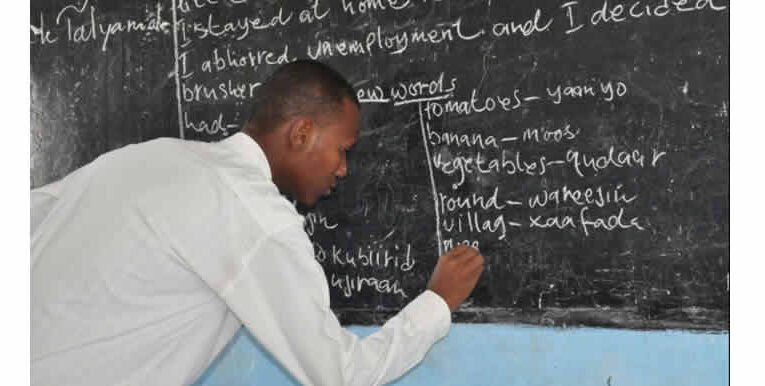 I stayed at home
I abhorred unemployment and I decided
brusher
new words
had-
tomatoes - yaanyo
banana - moos
vegetables - qudaar
round - wareesin
villag - xaafada
Kubiirid